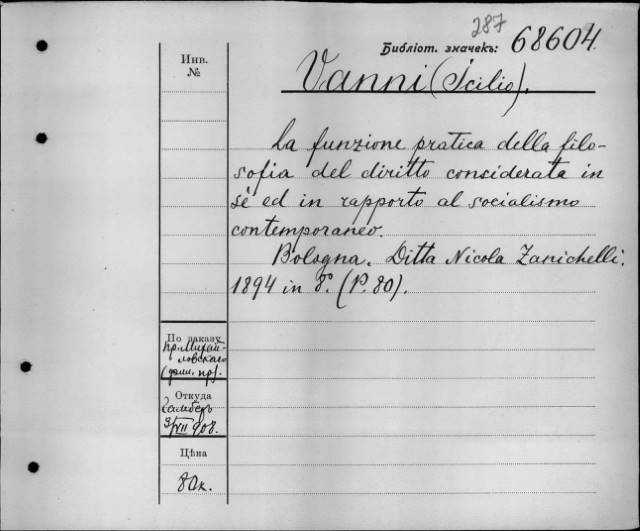 287
Библіот. значекъ: 68604
Инв.
№
Vanni (Icilio).
La funzione pratica della filo-
sofia del diritto considerata in
sé ed in rapporto al socialismo
contemporaneo.
Bologna. Ditta Nicola Zanichelli.
1894 in 8º. (P. 80).
По заказу
пр. Михай-
ловскаго
Откуда
3/VII 908.
Цѣна
80 к.